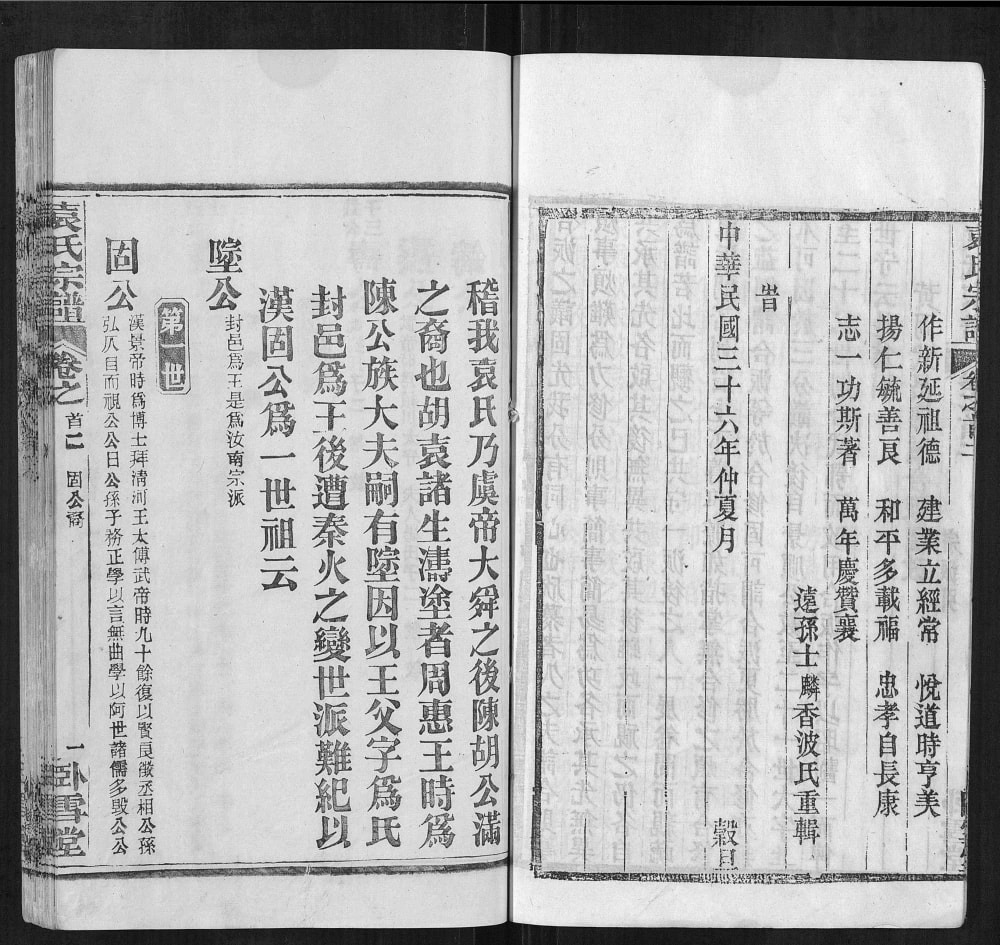 袁氏宗譜
作新延祖德 建業立經常 悅道時亨美
揚仁毓善良 和平多載福 忠孝自長康
志一功斯著 萬年慶贊襄
遠孫士麟香波氏重輯
旹
中華民國三十六年仲夏月 穀旦
稽我袁氏乃虞帝大舜之後陳胡公滿
之裔也胡袁諸生濤塗者周惠王時爲
陳公族大夫嗣有墬因以王父字爲氏
封邑爲王後遭秦火之變世派難紀以
漢固公爲一世祖云
墬公 封邑爲王是爲汝南宗派
第一世
固公 漢景帝時爲博士拜清河王太傅武帝時九十餘復以賢良徵丞相公孫
弘仄目而視公公曰公孫子務正學以言無曲學以阿世諸儒多毁公公
袁氏宗譜 卷之首二 固公裔 一 卧雪堂